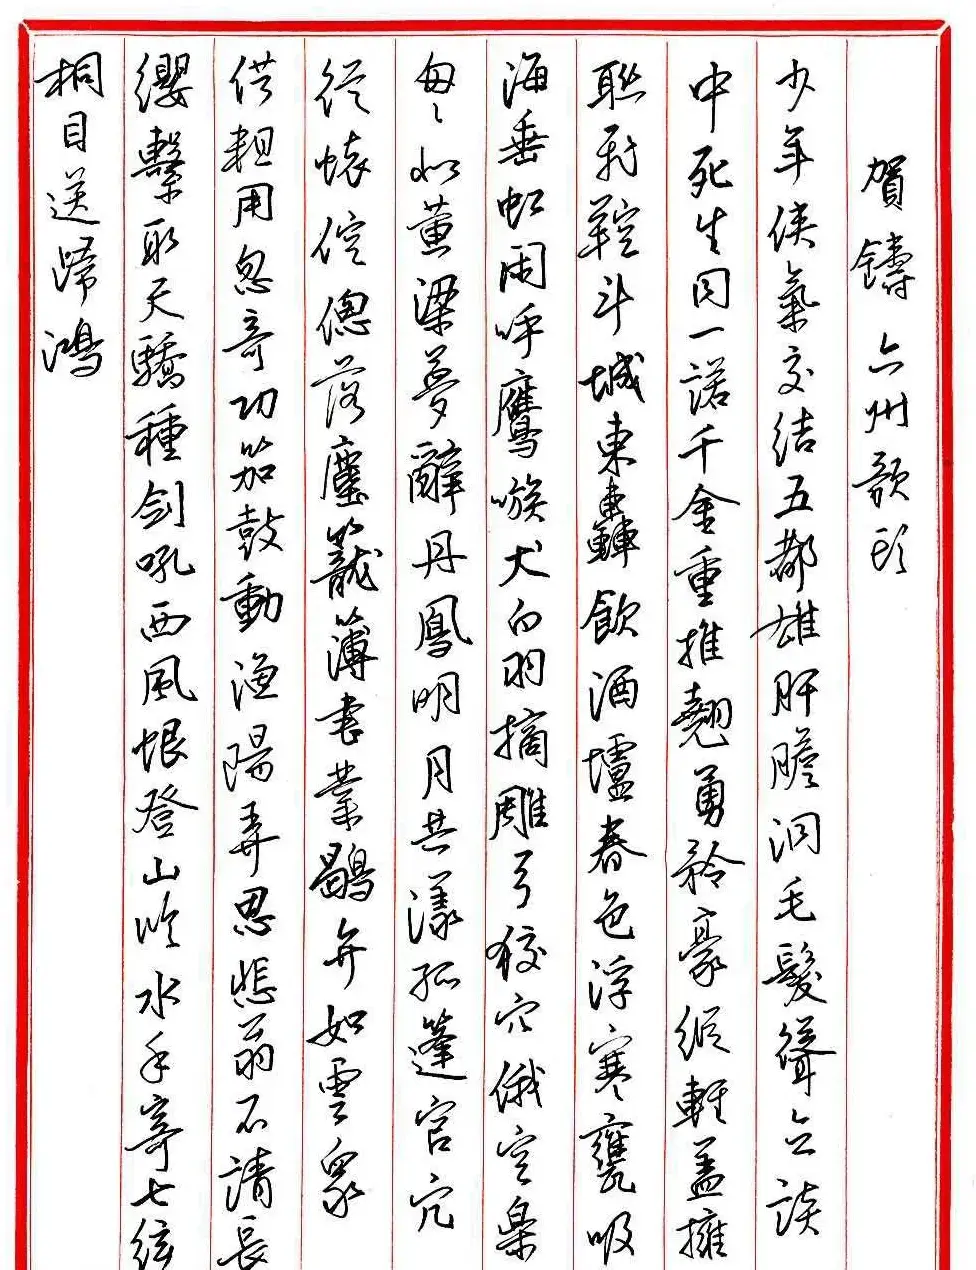 賀鑄 六州歌頭
少年俠氣交結五都雄肝膽洞毛髮聳立談
中死生同一諾千金重推翹勇矜豪縱輕蓋擁
聯飛鞚斗城東轟飲酒壚春色浮寒甕吸
海垂虹閑呼鷹嗾犬白羽摘雕弓狡穴俄空樂
匆〻似黃粱夢辭丹鳳明月共漾孤篷官冗
從懷倥傯落塵籠簿書業鶡弁如雲衆
供粗用忽奇功笳鼓動漁陽弄思悲翁不請長
纓繫取天驕種劍吼西風恨登山臨水手寄七絃
桐目送歸鴻